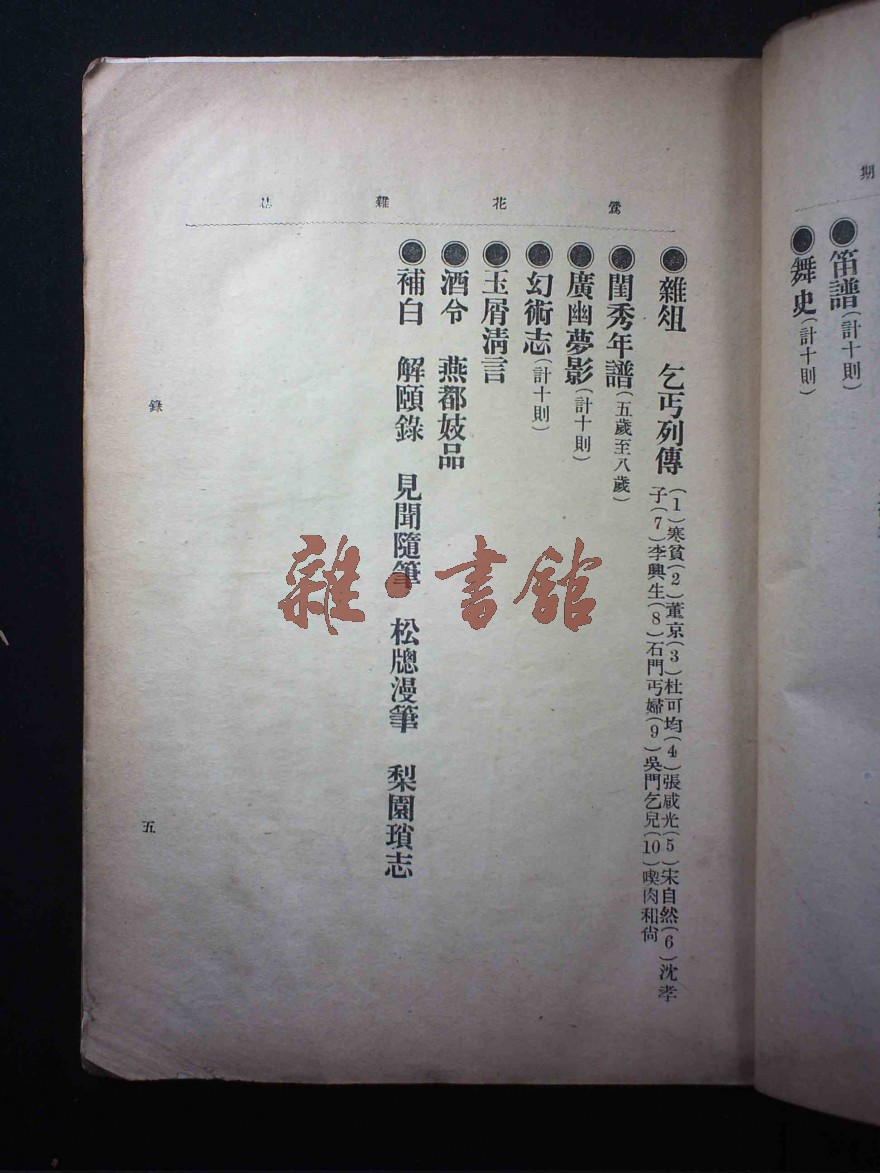 期
笛譜(計十則)
舞史(計十則)
鶯花雜誌
雜俎 乞丐列傳 (1)寒貧(2)董京(3)杜可均(4)張咸光(5)宋自然(6)沈孝
子(7)李興生(8)石門丐婦(9)吳門乞兒(10)喫肉和尙
閨秀年譜(五歲至八歲)
廣幽夢影(計十則)
幻術志(計十則)
玉屑淸言
酒令 燕都妓品
補白 解頤錄 見聞隨筆 松牕漫筆 梨園瑣志
錄
五
雜·書館